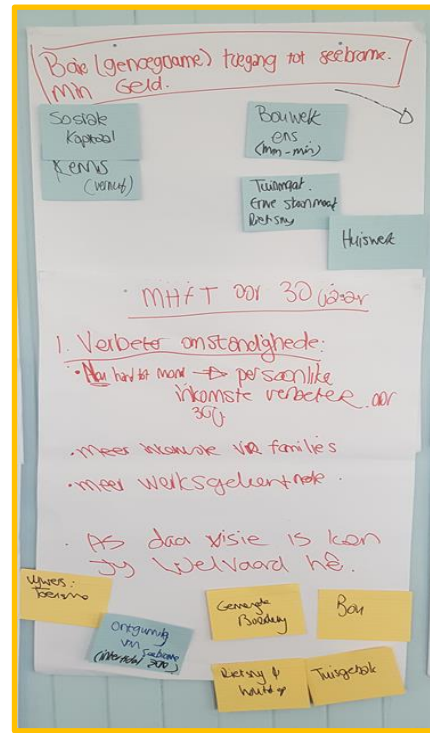 Baie (genoegsame) toegang tot seebrame.
Min Geld.
Sosiale
Kapitaal
Kennis
(vernuf)
Bouwerk
ens
(min-min)
Tuinmaat.
Erwe skoonmaak
Rietsny
Huiswerk
MHFT oor 30 jaar
1. Verbeter omstandighede:
• Nou hand tot mond → persoonlike
inkomste verbeter oor
30j
• meer inkomste via families
• meer werksgeleenthede.
• As daar visie is kan
jy Welvaard hê.
Toerisme
Ontginning
van Seebrame
(intertidal zone)
Gemengde
Boerdery
Bou
Rietsny &
houtkap
Tuisgebak